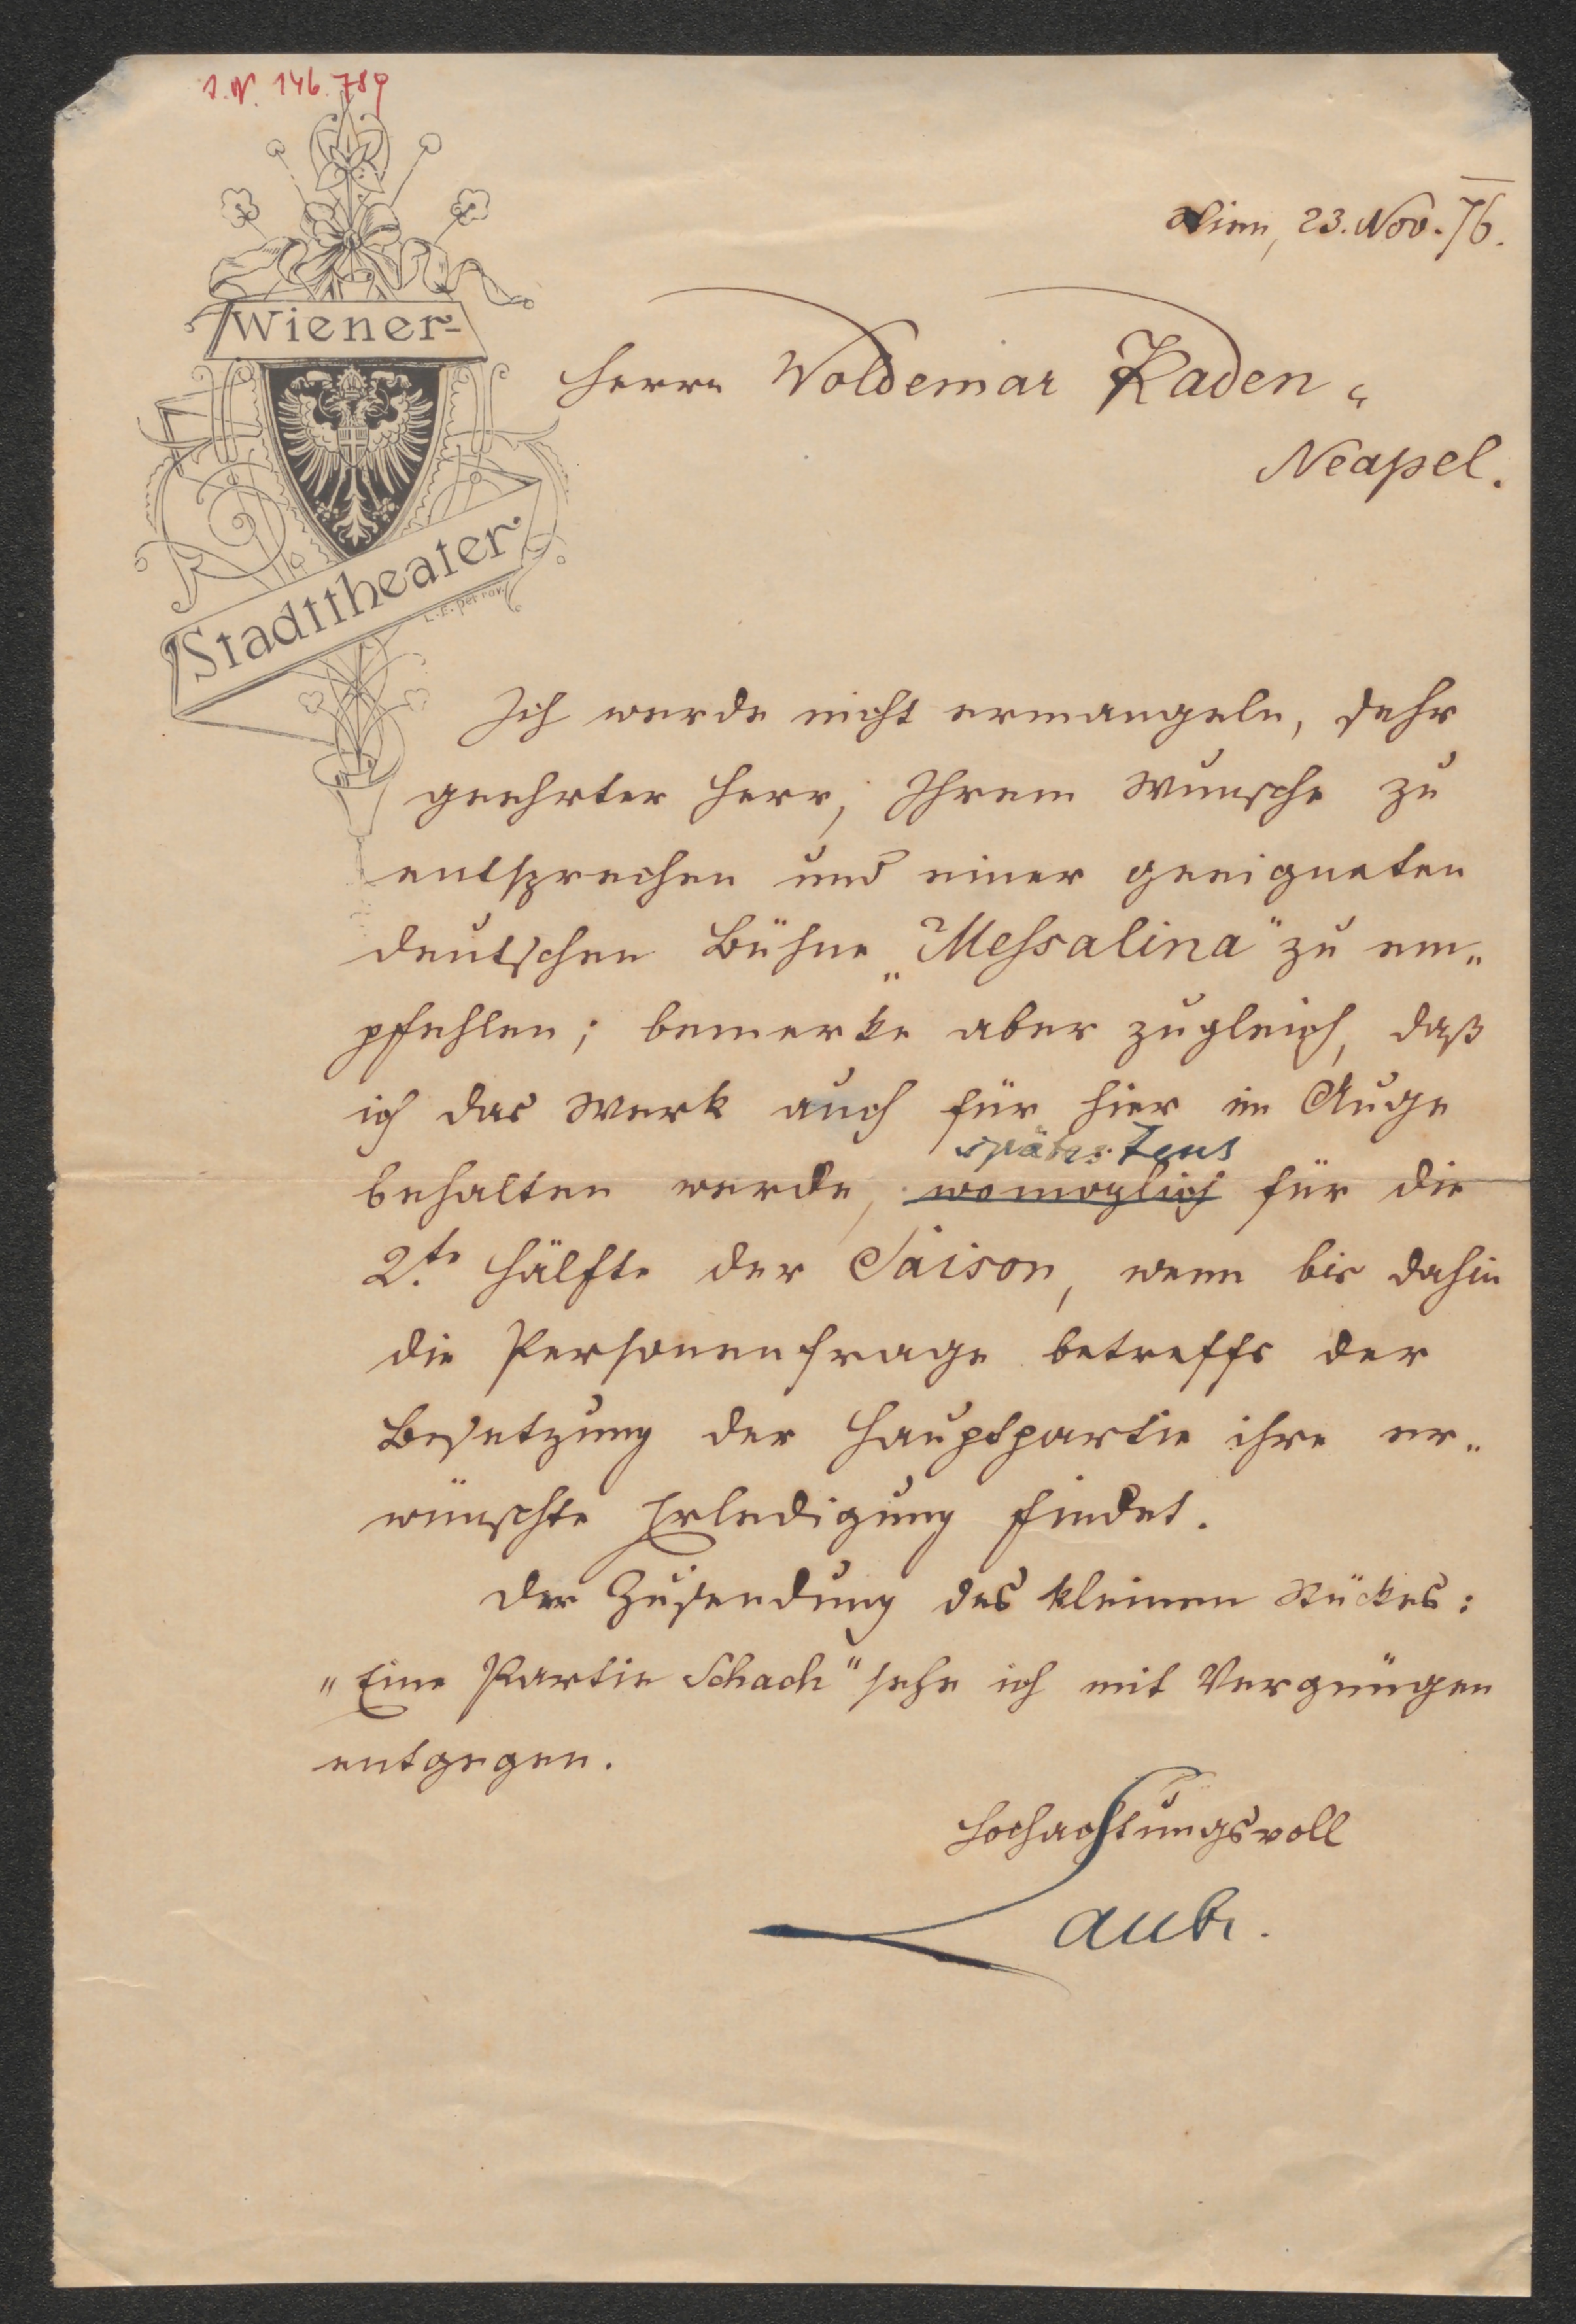 I.N. 146.789
Wien, 23. Nov. 76.
Wiener-
Stadttheater
Herrn Woldemar Kaden,
Neapel.
Ich werde nicht ermangeln, sehr
geehrter Herr, Ihrem Wunsche zu
entsprechen und einer geeigneten
deutschen Bühne „Messalina" zu em-
pfehlen; bemerke aber zugleich, daß
ich das Werk auch für hier im Auge
spätestens
behalten werde, womöglich für die
2te Hälfte der Saison, wenn bis dahin
die Personenfrage betreffs der
Besetzung der Hauptpartie ihre er-
wünschte Erledigung findet.
Der Zusendung des kleinen Stückes:
"Eine Partie Schach" sehe ich mit Vergnügen
entgegen.
Hochachtungsvoll
Laube.